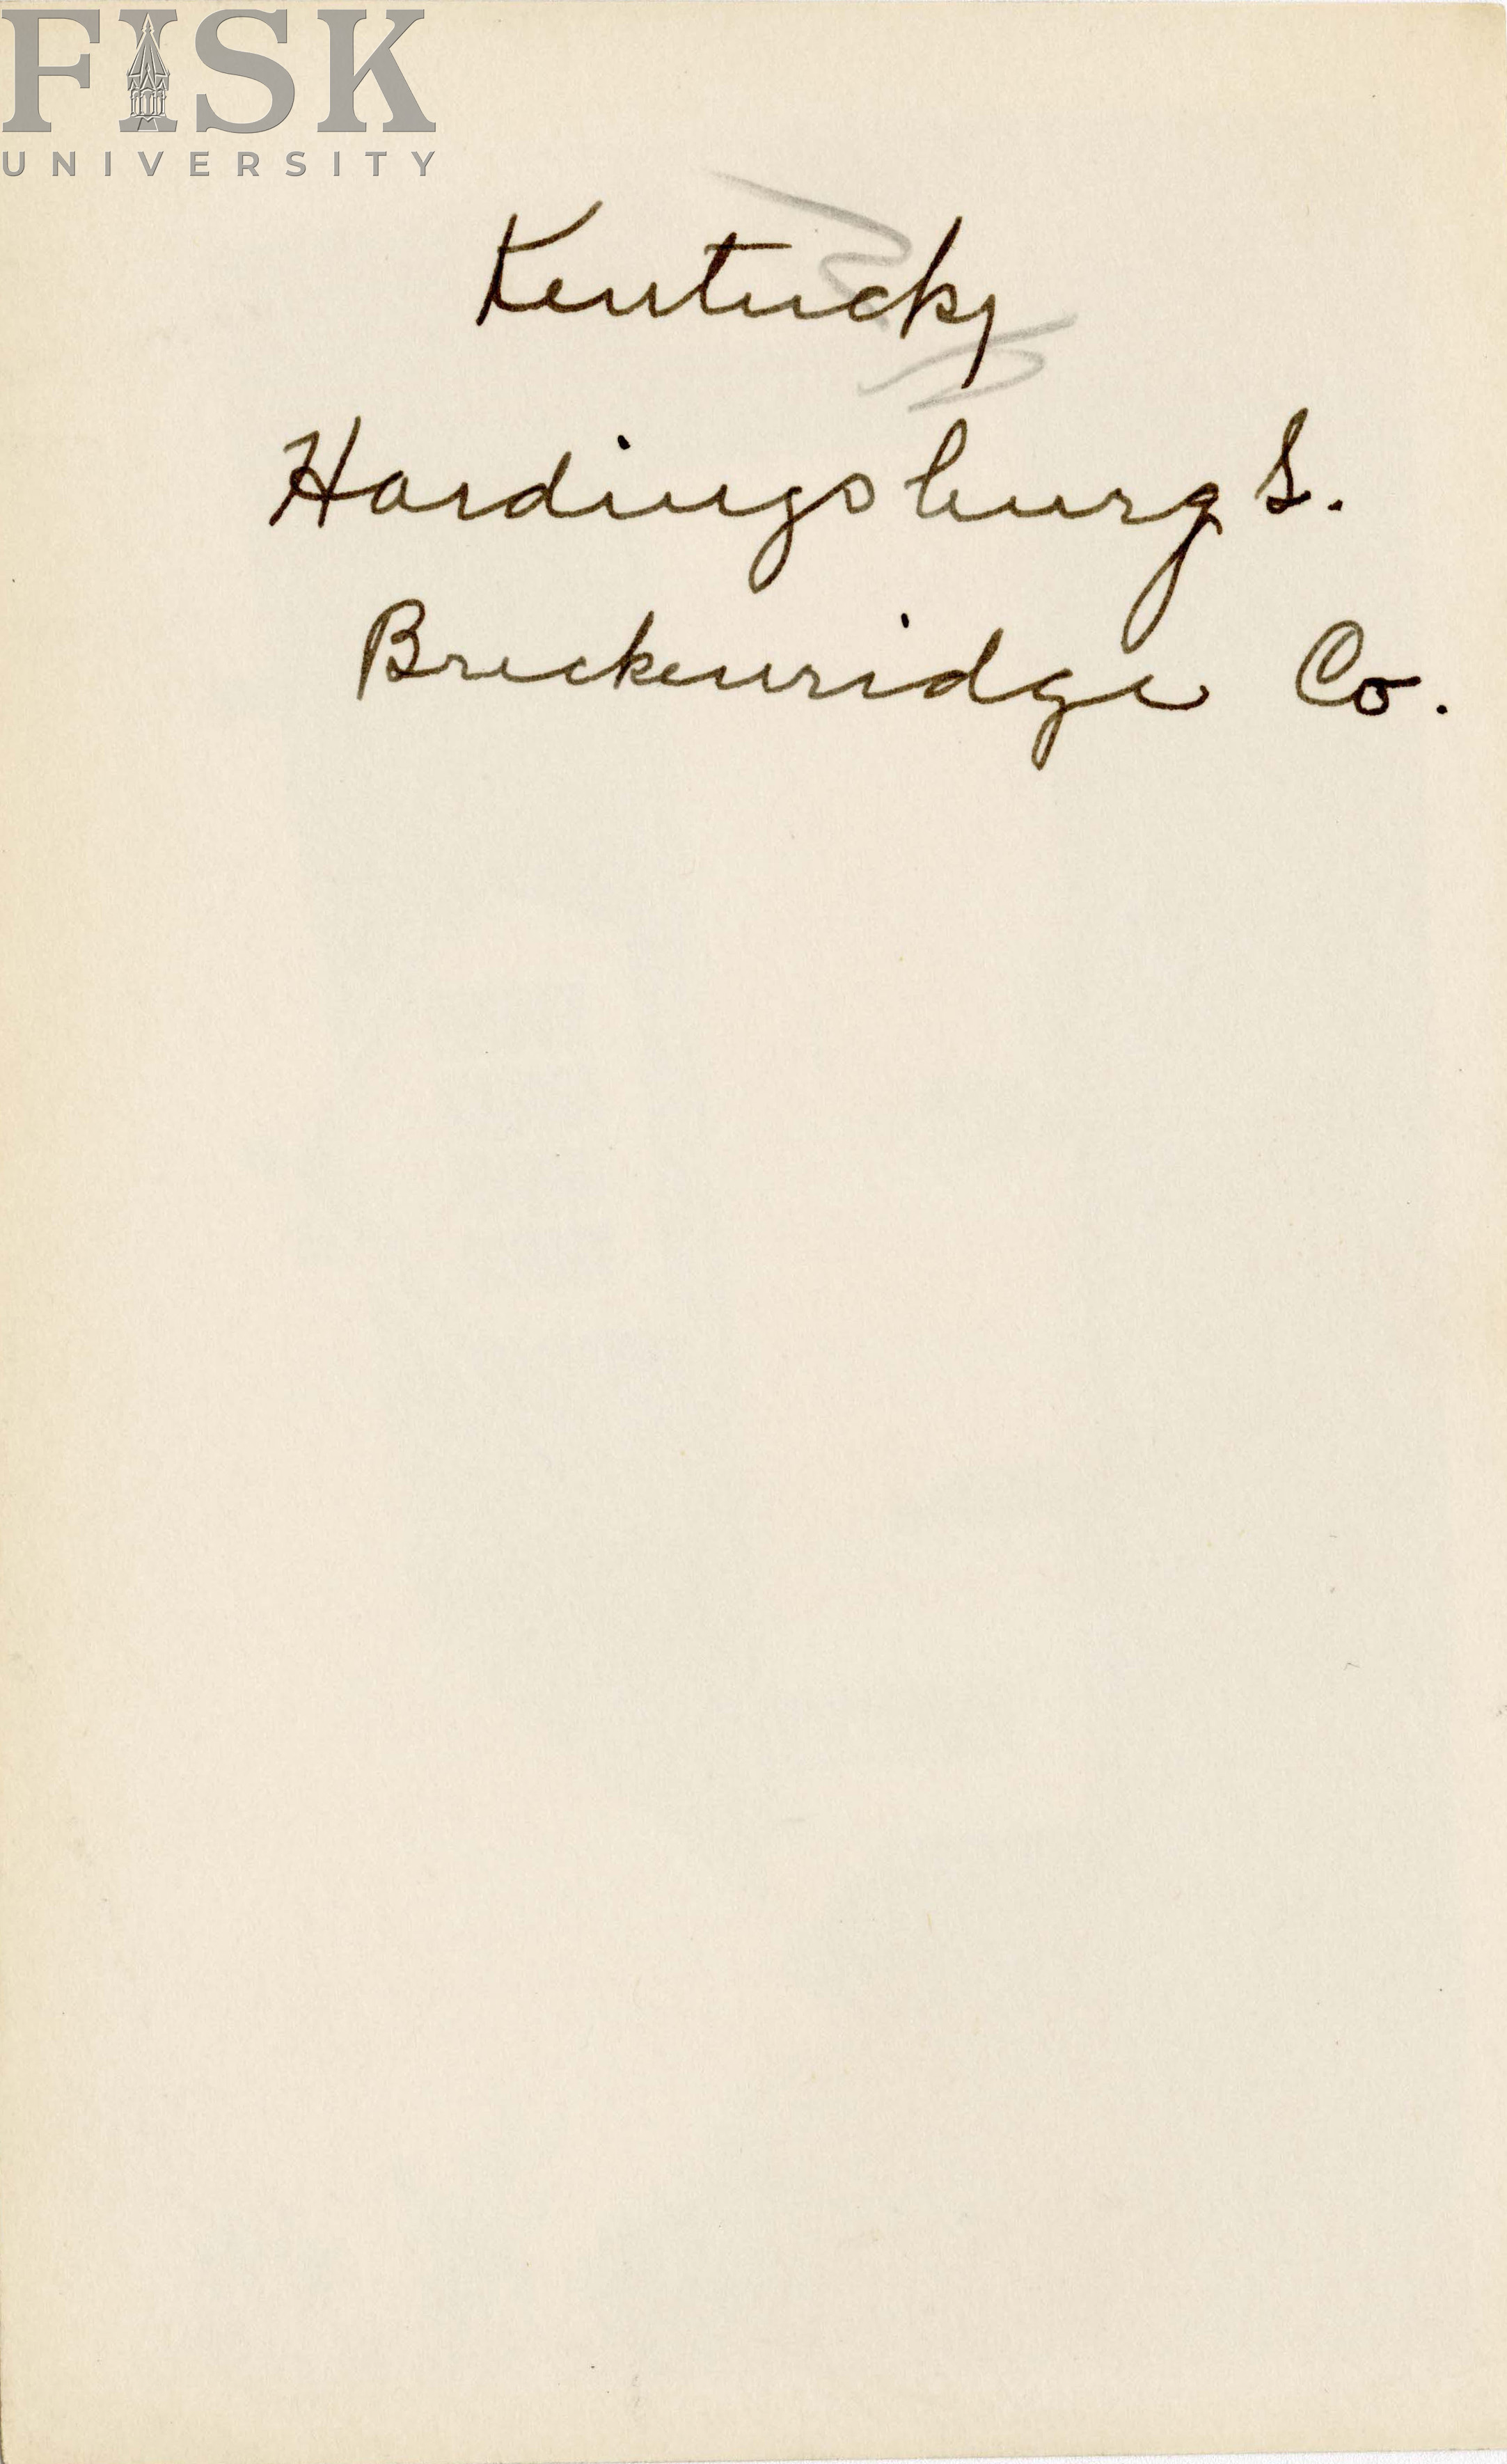 FISK
UNIVERSITY
Kentucky
Hardingsburg S.
Breckenridge Co.